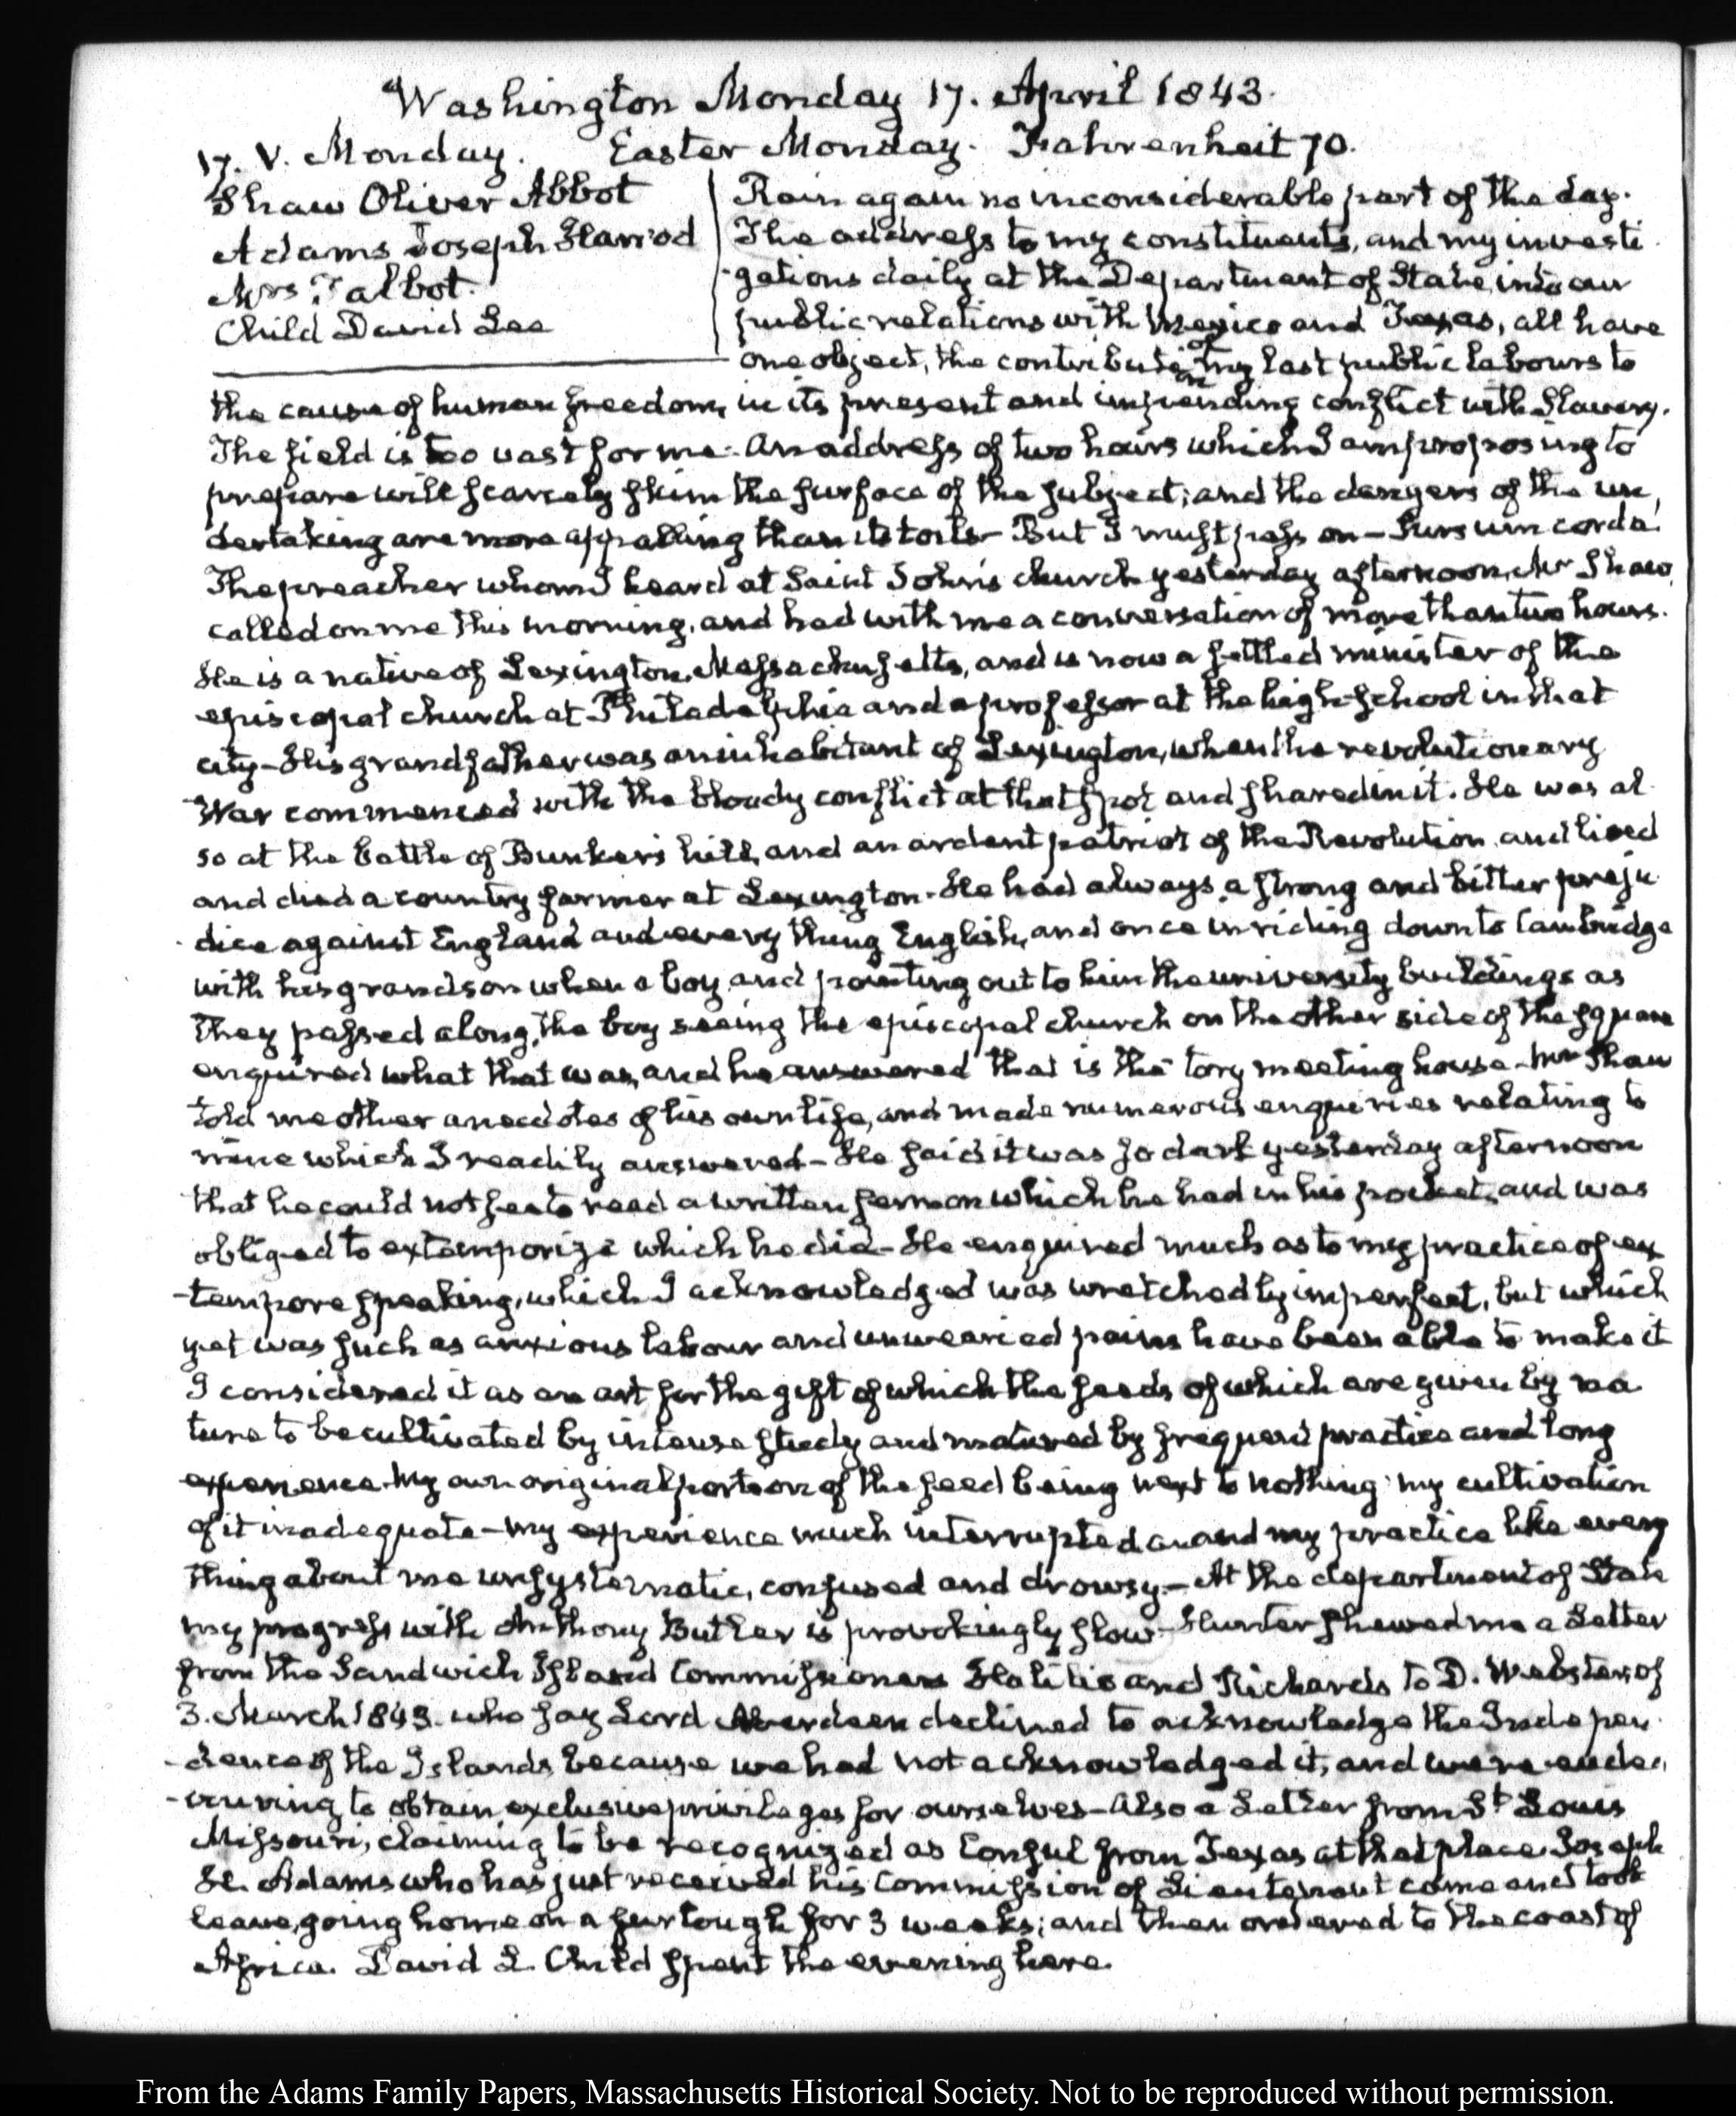 Washington Monday 17. April 1843.
17. V. Monday. Easter Monday. Fahrenheit 70.
Shaw Oliver Abbot
Adams Joseph Harrod
Mrs Talbot.
Child David Lee
Rain again no inconsiderable part of the day.
The address to my constituents, and my investi-
-gations daily at the Department of State, into our
public relations with Mexico and Texas, all have
one object, the contribution of my last public labours to
the cause of human freedom, in its present and impending conflict with Slavery.
The field is too vast for me. An address of two hours which I am proposing to
prepare will scarcely skim the surface of the subject; and the dangers of the un,
dertaking are more appalling than its toils— But I must pass on— Sursum corda!
The preacher whom I heard at Saint John's church yesterday afternoon, Mr Shaw,
called on me this morning, and had with me a conversation of more than two hours.
He is a native of Lexington, Massachusetts, and is now a settled minister of the
episcopal church at Philadelphia and a professor at the high-school in that
city— His grandfather was an inhabitant of Lexington, when the revolutionary
War commenced with the bloody conflict at that spot and shared in it. He was al-
so at the battle of Bunker's hill, and an ardent patriot of the Revolution, and lived
and died a country farmer at Lexington. He had always a strong and bitter preju-
-dice against England and every thing English, and once in riding down to Cambridge
with his grandson when a boy, and pointing out to him the university buildings as
they passed along, the boy seeing the episcopal church on the other side of the square
enquired what that was, and he answered that is the tory meeting house— Mr Shaw
told me other anecdotes of his own life, and made numerous enquiries relating to
mine which I readily answered— He said it was so dark yesterday afternoon
that he could not see to read a written sermon which he had in his pocket, and was
obliged to extemporize which he did— He enquired much as to my practice of ex
-tempore speaking, which I acknowledged was wretchedly imperfect, but which
yet was such as anxious labour and unwearied pains have been able to make it
I considered it as an art for the gift of which the seeds of which are given by na-
ture to be cultivated by intense study and matured by frequent practice and long
experience. My own original portion of the seed being next to nothing my cultivation
of it inadequate— my experience much interrupted and my practice like every
thing about me unsystematic, confused and drowsy.— At the department of State
my progress with Anthony Butler is provokingly slow— Hunter shewed me a Letter
from the Sandwich Island Commissioners Halilio and Richards to D. Webster, of
3. March 1843. who say Lord Aberdeen declined to acknowledge the Indepen-
-dence of the Islands, because we had not acknowledged it, and were endea,
-vouring to obtain exclusive privileges for ourselves— Also a Letter from St Louis
Missouri, claiming to be recognized as Consul from Texas at that place. Joseph
H. Adams who has just received his Commission of Lieutenant came and took
leave, going home on a furlough for 3 weeks; and then ordered to the coast of
Africa. David L. Child spent the evening here.
From the Adams Family Papers, Massachusetts Historical Society. Not to be reproduced without permission.